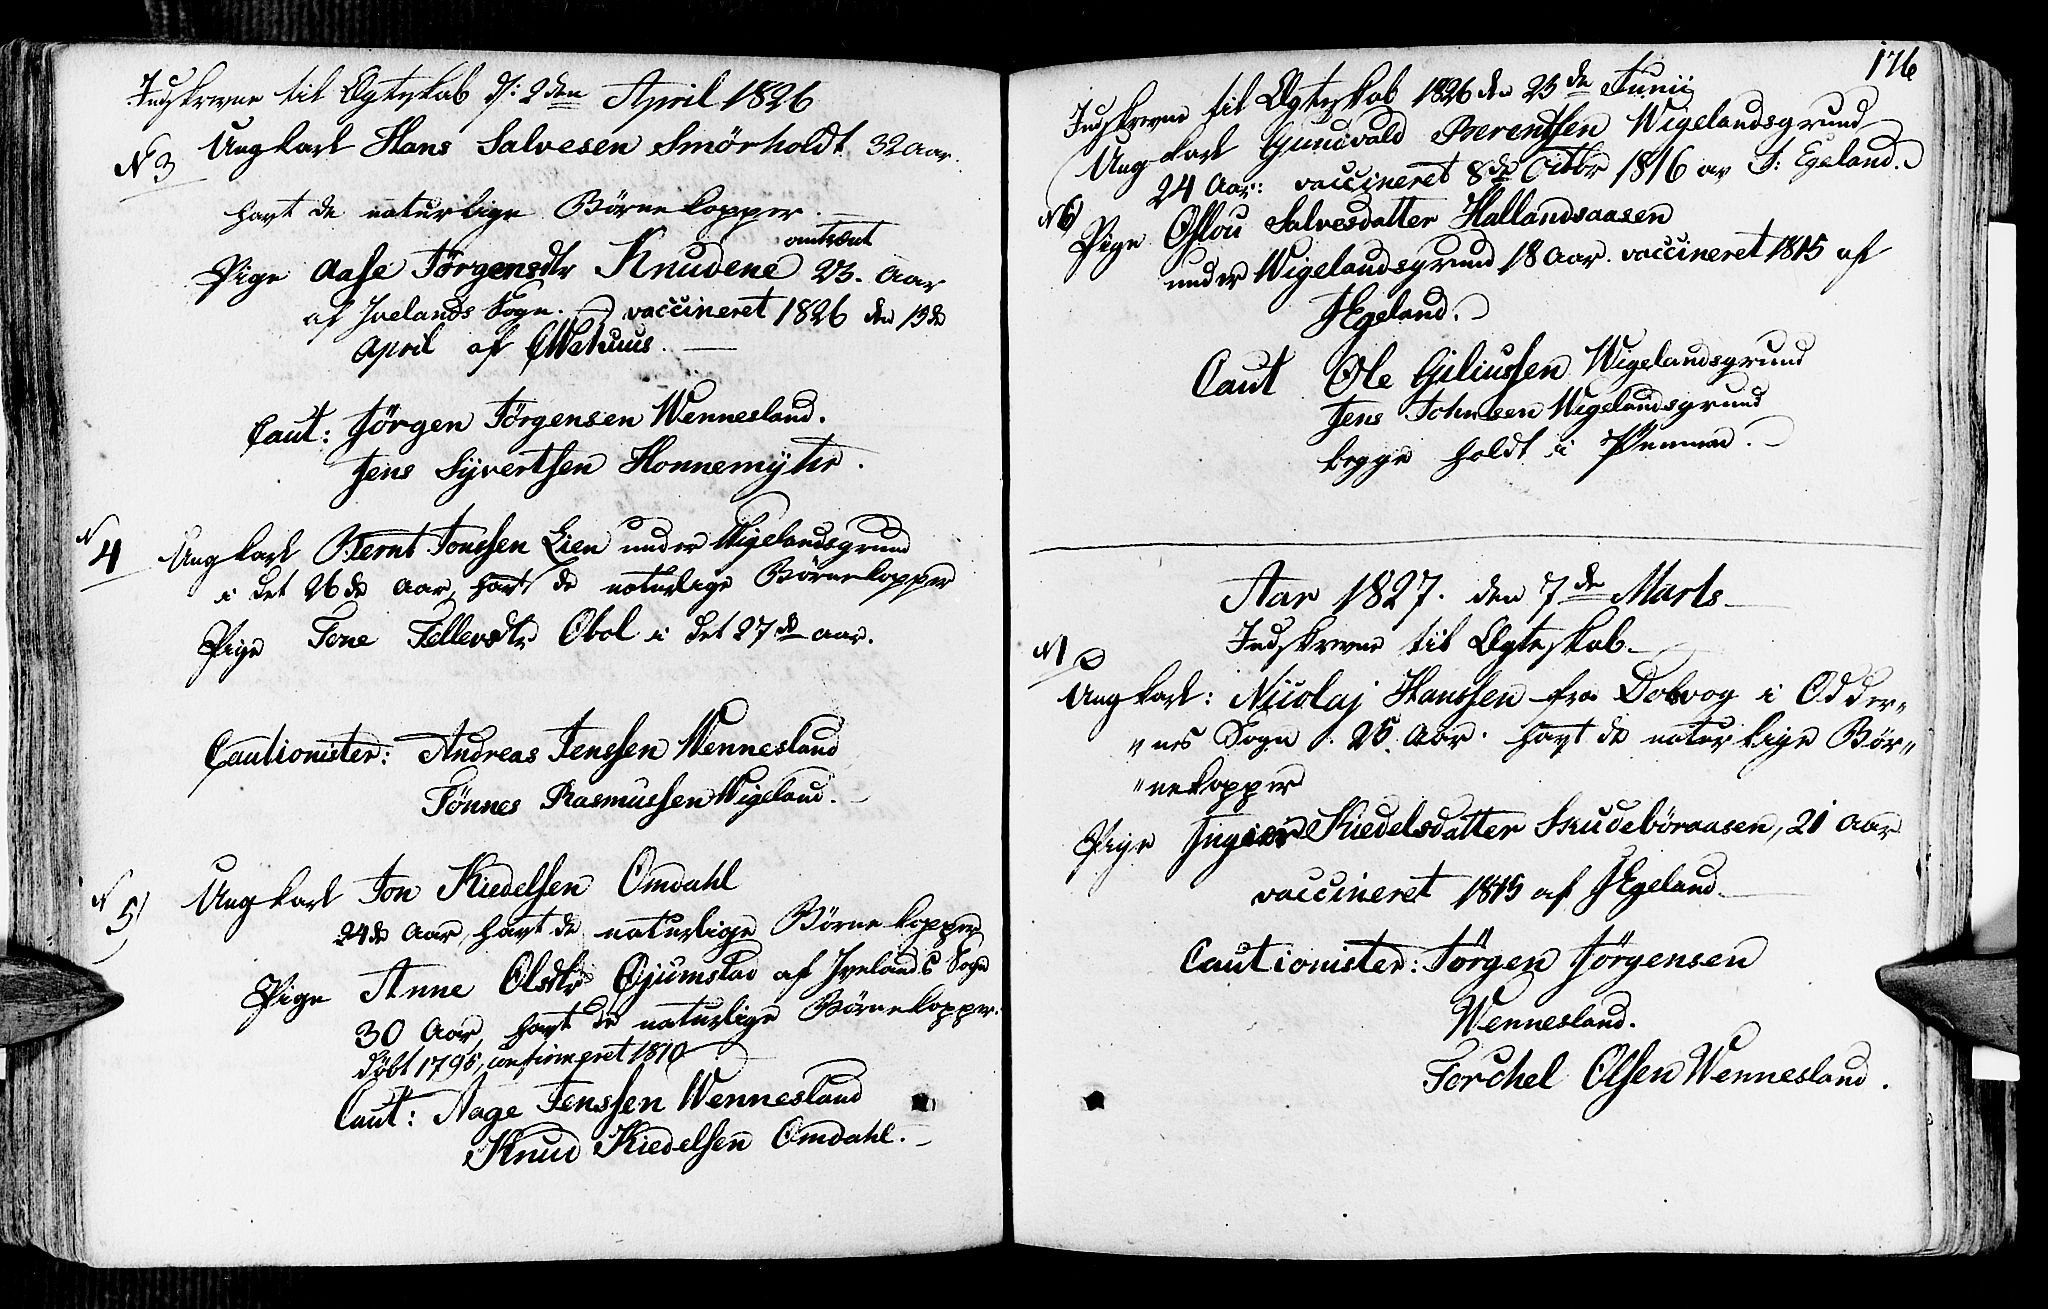 Indskrevne til Ægteskab d: 2den April 1826
N 3
Ungkarl Hans Salvesen Smörholdt 32 Aar.
havt de naturlige Börnekopper.
omtrent
Pige Aase Jörgensdtr Knudene 23. Aar
af Ivelands Sogn. vaccineret 1826 den 13de
April af
Caut: Jörgen Jörgensen Wennesland.
Jens Syvertsen Honnemyhr.
N 4
Ungkarl Bernt Jonssen Lien under Wigelandsgrund
i det 26de Aar, havt de naturlige Börnekopper
Pige Tone Tellevsdtr Obol i det 27de aar.
Cautionister: Andreas Jenssen Wennesland
Tönnes Rasmussen Wigeland.
N 5)
Ungkarl Jon Kiedelsen Omdahl
24de Aar, havt de naturlige Börnekopper
Pige Anne Olsdtr Gjumslad af Ivelands Sogn
30 Aar, havt de naturlige Börnekopper.
döbt 1795, confirmeret 1810
Caut: Aage Jenssen Wennesland
Knud Kiedelsen Omdahl.
176
Indskrevne til Ægteskab 1826 den 23de Junii
Ungkarl Gundvald Berentsen Wigelandsgrund
24 Aar: vaccineret 8de Octbr 1816 av J: Egeland.
N 6)
Pige Oslou Salvesdatter Hallandsaasen
under Wigelandsgrund 18 Aar. vaccineret 1815 af
J Egeland.
Caut Ole Giliussen Wigelandsgrund
Jens Johnsen Wigelandsgrund
begge holdt i Pennen.
Aar 1827. den 7de Marts
Indskrevne til Ægteskab.
N 1
Ungkarl: Nicolaj Hanssen fra Dolvog i Odder"
"nes Sogn. 25. Aar. havt de naturlige Bör"
"nekopper
Pige Ingier Kiedelsdatter Skudeböraasen, 21 Aar
vaccineret 1815 af J Egeland.
Cautionister: Jörgen Jörgensen
Wennesland.
Torchel Olsen Wennesland.